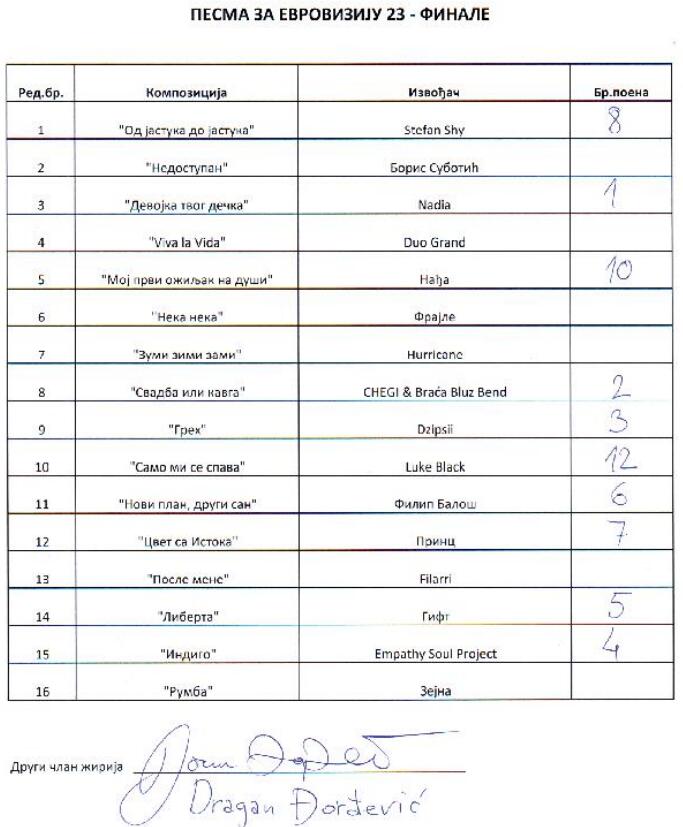 ПЕСМА ЗА ЕВРОВИЗИЈУ 23 - ФИНАЛЕ
Ред.бр. Композиција Извођач Бр.поена
1 "Од јастука до јастука" Stefan Shy 8
2 "Недоступан" Борис Суботић
3 "Девојка твог дечка" Nadia 1
4 "Viva la Vida" Duo Grand
5 "Мој први ожиљак на души" Нађа 10
6 "Нека нека" Фрајле
7 "Зуми зими зами" Hurricane
8 "Свадба или кавга" CHEGI & Braća Bluz Bend 2
9 "Грех" Dzipsii 3
10 "Само ми се спава" Luke Black 12
11 "Нови план, други сан" Филип Балош 6
12 "Цвет са Истока" Принц 7
13 "После мене" Filarri
14 "Либерта" Гифт 5
15 "Индиго" Empathy Soul Project 4
16 "Румба" Зејна
Други члан жирија
Dragan Đorđević